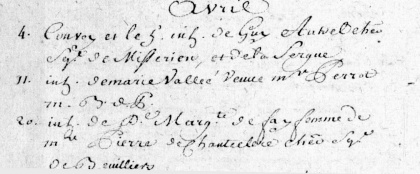 Avril
4. Convoy et le s. inh. de Guy Ansel che.
Sgr. de Misserien, et de la Sergue
11. inh. de marie Vallée Veuve mr. Perrot
m. Bd. d. P.
20. inh. de De. Margte. de fay femme de
mre. Pierre de Chantelou che. Sgr.
de Beuilliers